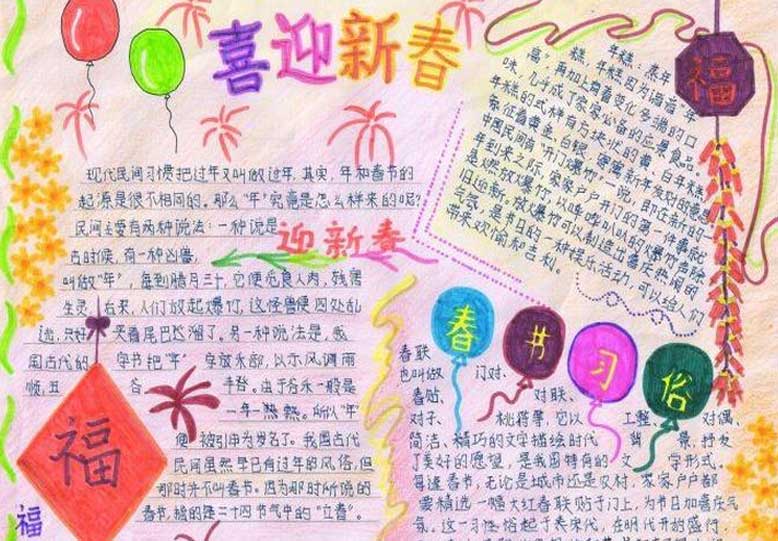 喜迎新春
现代民间习惯把过年又叫做过年,其实,年和春节的
起源是很不相同的。那么"年"究竟是怎么样来的呢?
民间主要有两种说法:一种说是
古时候,有一种凶兽,
叫做"年",每到腊月三十,它便觅食人肉,残害
生灵,后来,人们放起爆竹,这怪兽便四处乱
逃,只好 夹着尾巴逃溜了。另一种说法是,我
国古代的 字书把"年" 字放禾部,以示风调雨
顺,五 谷 丰登。由于谷禾一般是
一年一熟。所以"年"
便 被引申为岁名了。我国古代
民间虽然早已有过年的风俗,但
那时并不叫春节。因为那时所说的
春节,指的是二十四节气中的"立春"。
迎新春
福
福
年糕:热年
糕,年糕因为谐音"年
味,几乎成了家家必备的应景食品。
年糕的式样有方块状的黄、白年糕
象征着黄金、白银,
中国民间有"开门爆竹"一说,即在新的
年到来之际,家家户户开门的第一件事就
是燃放爆竹,以哔哔叭叭的爆竹声除
旧迎新。放爆竹可以制造出喜庆热闹的
气氛,是节日的一种娱乐活动,可以给人们
带来欢愉和吉利。
福
春节习俗
春联
也叫做 门对、
春贴、 对联、
对子、 桃符等,它以 工整、 对偶、
简洁、精巧的文字描绘时代 背 景,抒发
了美好的愿望,是我国特有的 文 学形式。
每逢春节,无论是城市还是农村,家家户户都
要精选一幅大红春联贴于门上,为节日加喜庆气
氛。这一习俗起于宋代,在明代开始盛行,